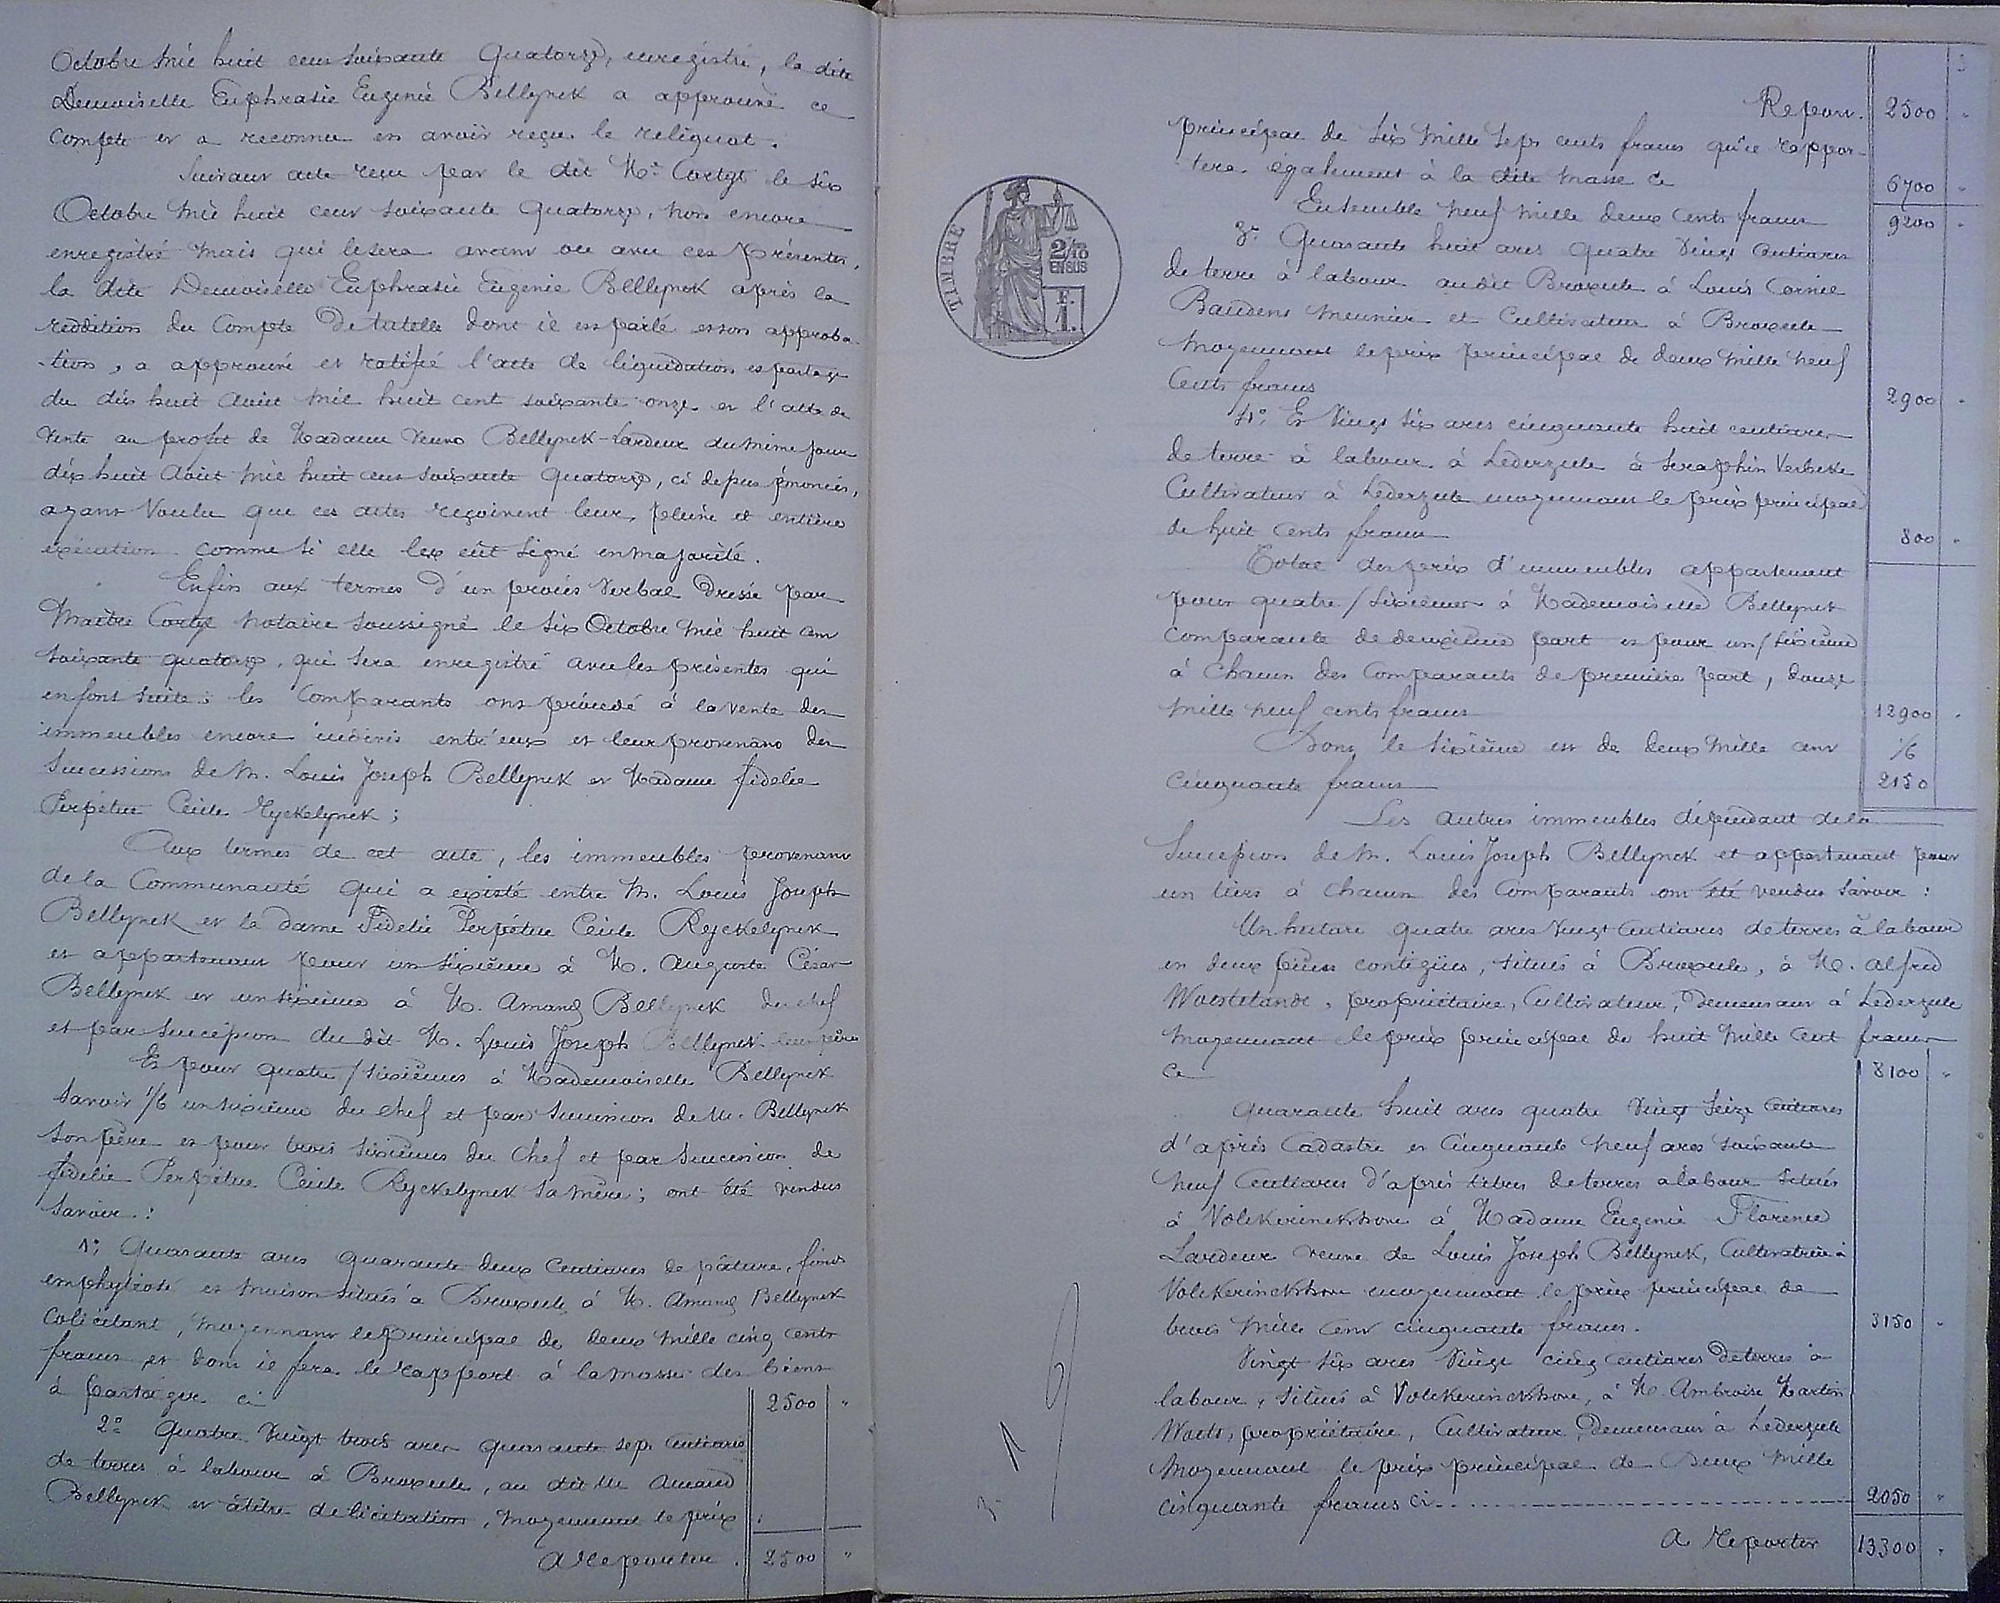 Octobre mil huit cent soixante Quatorze, enregistré, la dite
Demoiselle Euphrasie Eugenie Bellynck a approuvé ce
Compte et a reconnu en avoir reçu le reliquat.
Suivant acte reçu par le dit Me Cortyl le six
Octobre mil huit cent soixante Quatorze, non encore
enregistré mais qui le sera avant ou avec ces présentes,
la dite Demoiselle Euphrasie Eugenie Bellynck après la
reddition du Compte de tutelle dont il est parlé et son approba-
-tion, a approuvé et ratifié l'acte de liquidation et partage
du dix huit Août mil huit cent soixante onze et l'acte de
Vente au profit de Madame Veuve Bellynck-Lardeur du même jour
dix huit Août mil huit cent soixante Quatorze, ci dessus énoncés,
ayant Voulu que ces actes reçoivent leur pleine et entière
exécution comme si elle les eût signé en majorité.
Enfin aux termes d'un procès Verbal Dressé par
Maître Cortyl notaire soussigné le six Octobre mil huit cent
soixante quatorze, qui sera enregistré avec les présentes qui
en font suite; les Comparants ont procédé à la vente des
immeubles encore indivis entr'eux et leur provenant des
Successions de M. Louis Joseph Bellynck et Madame fidelie
Perpétue Cécile Ryckelynck;
Aux termes de cet acte, les immeubles provenant
de la Communauté qui a existé entre M. Louis Joseph
Bellynck et la dame Fidelie Perpétue Cécile Ryckelynck
et appartenant pour un sixième à M. Auguste César
Bellynck et un sixième à M. Amand Bellynck du chef
et par succession du dit M. Louis Joseph Bellynck leur père
Et pour quatre/sixièmes à Mademoiselle Bellynck
Savoir 1/6 un sixième du chef et par succession de M. Bellynck
son père et pour trois sixièmes du Chef et par succession de
fidelie Perpétue Cécile Ryckelynck sa mère; ont été vendus
Savoir:
1° Quarante ares quarante deux Centiares de pâture, fonds
emphytéoté et maison situés à Broxeele à M. Amand Bellynck
Colicitant, moyennant le principal de deux mille cinq cents
francs et dont il fera le rapport à la masse des biens
à partager ci 2500 "
2° Quatre Vingt trois ares quarante sept Centiares
de terres à labour à Broxeele, au dit M. Amand
Bellynck et à titre de licitation, moyennant le prix
A Reporter. 2500 "
Report. 2500 "
principal de six mille sept cents francs qu'il rappor-
tera également à la dite masse Ci 6700 "
Ensemble neuf mille deux cents francs 9200 "
3° Quarante huit ares quatre Vingt Centiares
de terre à labour audit Broxeele à Louis Cornil
Baudens meunier et Cultivateur à Broxeele
moyennant le prix principal de deux mille neuf
Cents francs 2900 "
4° Et Vingt six ares cinquante huit centiares
de terre à labour à Lederzeele à Seraphin Verbeke
Cultivateur à Lederzeele moyennant le prix principal
de huit cents francs 800 "
Total des prix d'immeubles appartenant
pour quatre/sixièmes à Mademoiselle Bellynck
comparante de deuxième part et pour un/sixième
à chacun des Comparants de première part, douze
mille neuf cents francs 12900 "
Dont le sixième est de deux mille cent 1/6
cinquante francs 2150
Les autres immeubles dépendant de la
Succession de M. Louis Joseph Bellynck et appartenant pour
un tiers à chacun des Comparants ont été vendus savoir:
Un hectare quatre ares Vingt Centiares de terres à labour
en deux pièces contigües, situés à Broxeele, à M. Alfred
Waestelandt, propriétaire, Cultivateur, Demeurant à Lederzeele
moyennant le prix principal de huit mille Cent francs
Ci 8100 "
Quarante huit ares quatre Vingt Seize Centiares
d'après Cadastre et Cinquante neuf ares soixante
neuf Centiares d'après titres de terres à labour situés
à Volckerinckhove à Madame Eugenie Florence
Lardeur veuve de Louis Joseph Bellynck, Cultivatrice à
Volckerinckhove moyennant le prix principal de
trois mille Cent cinquante francs. 3150 "
Vingt six ares Vingt cinq Centiares de terres à
labour, situés à Volckerinckhove, à M. Ambroise Martin
Waets, propriétaire, Cultivateur Demeurant à Lederzeele
moyennant le prix principal de Deux mille
cinquante francs ci 2050 "
A Reporter 13300 "
TIMBRE
2/10
EN SUS
1 F.